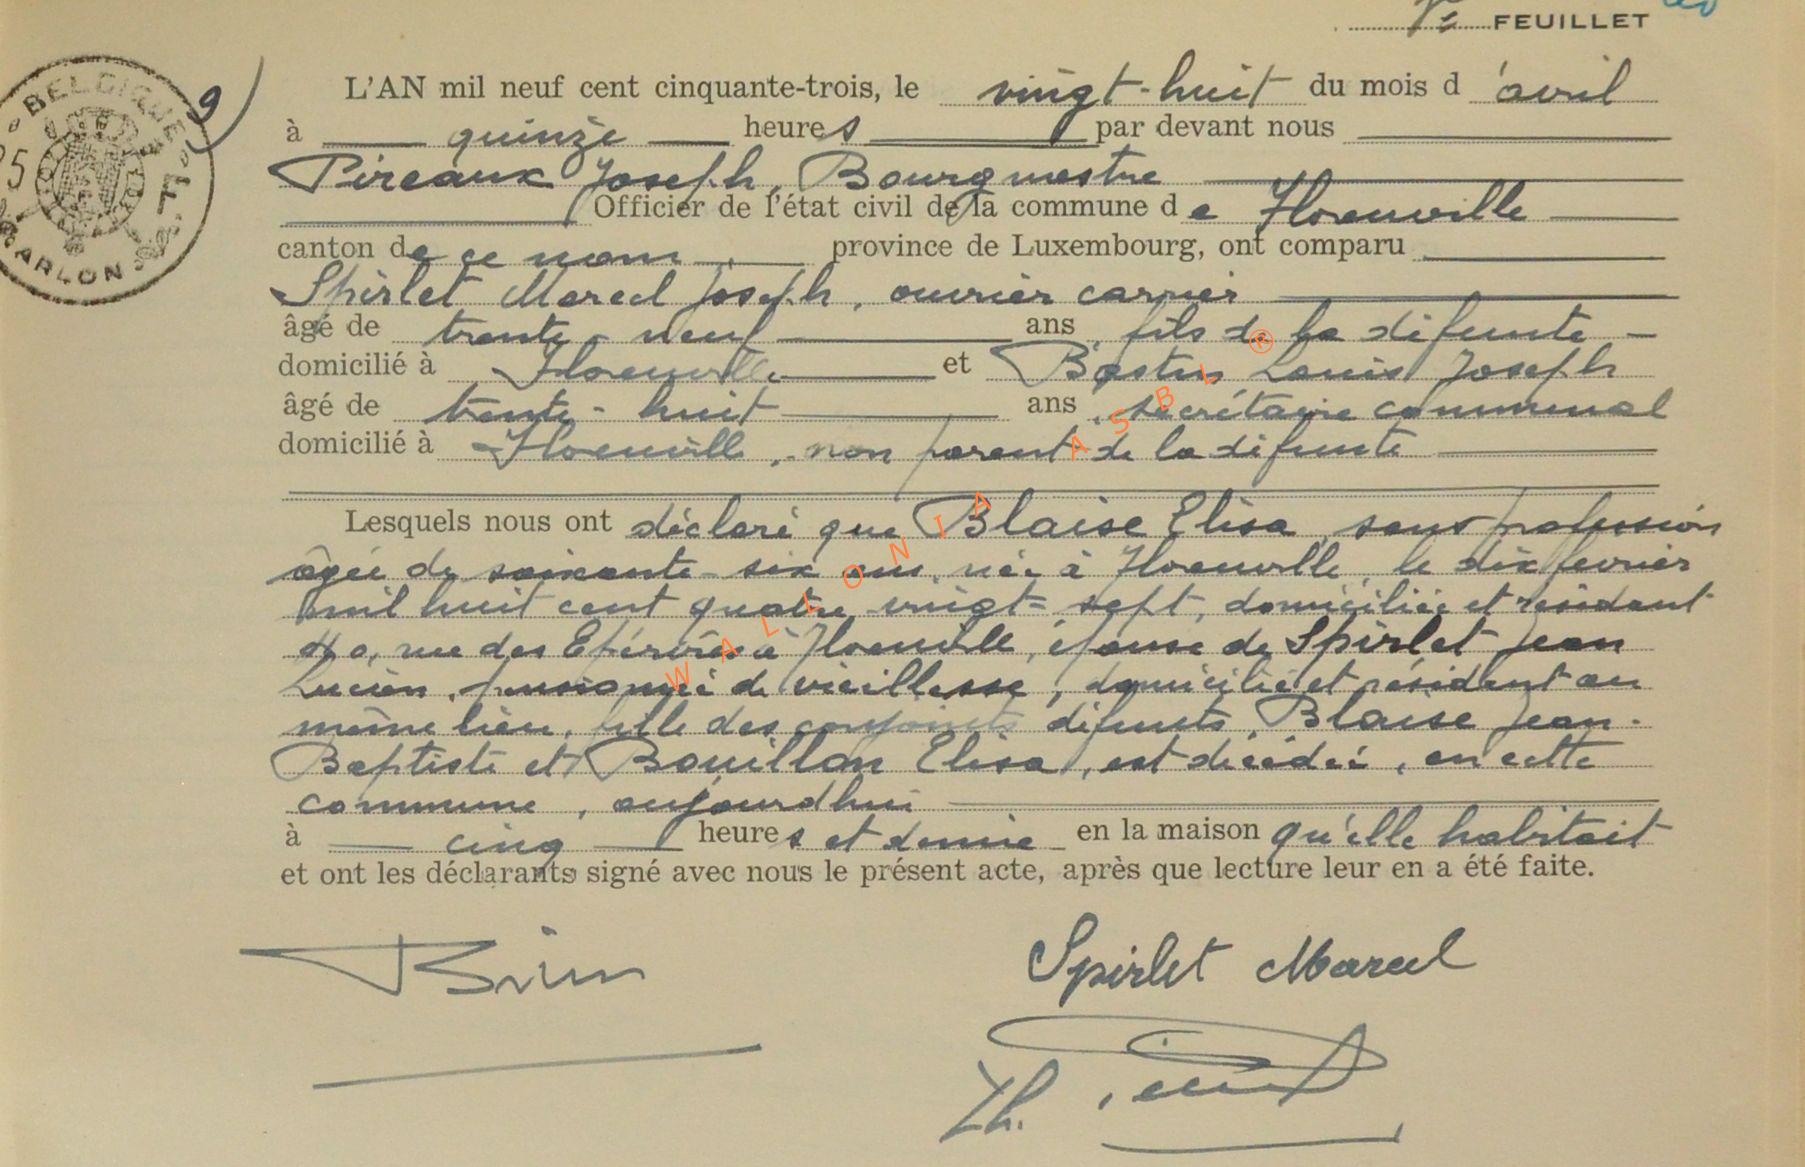 FEUILLET
9)
BELGIQUE
F
ARLON
L'AN mil neuf cent cinquante-trois, le vingt-huit du mois d'avril
à quinze heures par devant nous
Pireaux Joseph, Bourgmestre
Officier de l'état civil de la commune de Florenville
canton de ce nom province de Luxembourg, ont comparu
Spirlet Marcel Joseph, ouvrier carrier
âgé de trente-neuf ans, fils de la défunte
domicilié à Florenville et Bastin Louis Joseph
âgé de trente-huit ans, secrétaire communal
domicilié à Florenville, non parent de la défunte
Lesquels nous ont déclaré que Blaise Elisa, sans profession
âgée de soixante-six ans, née à Florenville, le dix février
mil huit cent quatre-vingt-sept, domiciliée et résidant
rue des Epérires à Florenville, épouse de Spirlet Jean
Lucien, pensionné de vieillesse, domicilié et résidant au
même lieu, fille des conjoints défunts, Blaise Jean-
Baptiste et Bouillon Elisa, est décédée, en cette
commune, aujourd'hui
à cinq heures et demie en la maison qu'elle habitait
et ont les déclarants signé avec nous le présent acte, après que lecture leur en a été faite.
Spirlet Marcel
WALLONIA ASBL ®